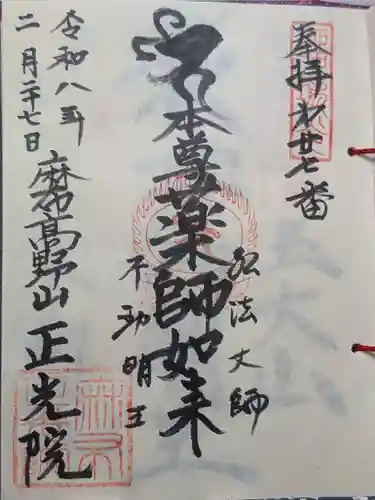 奉拝第廿七番
本尊薬師如来
弘法大師
不動明王
麻布高野山
正光院
令和八年
二月二十七日